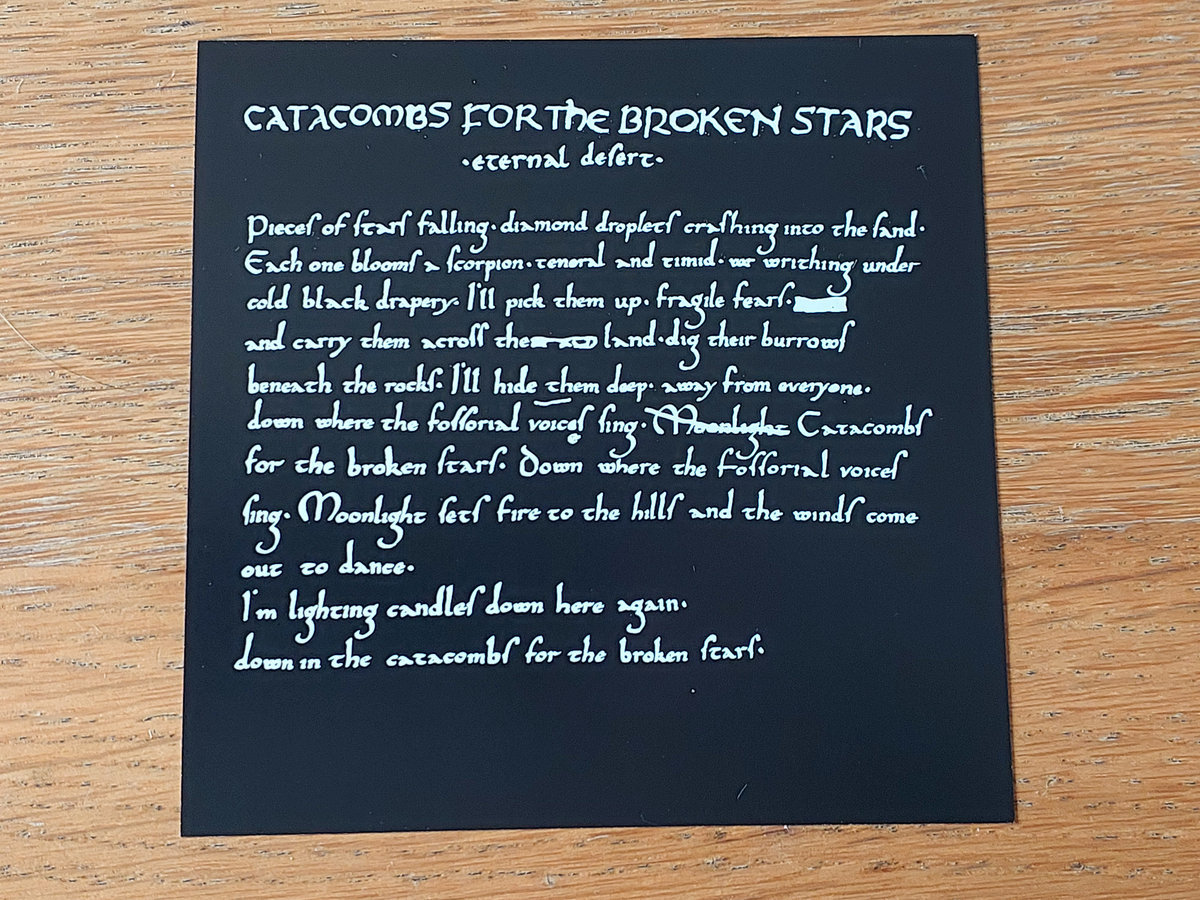 CATACOMBS FOR The BROKEN STARS
·eternal deſert·
Pieceſ of ſtarſ falling· diamond dropletſ craſhing into the ſand·
Each one bloomſ a ſcorpion· teneral and timid· writhing under
cold black drapery· I'll pick them up· fragile fearſ·
and carry them acroſſ the land· dig their burrowſ
beneath the rockſ· I'll hide them deep· away from everyone·
down where the foſſorial voiceſ ſing· Moonlight Catacombſ
for the broken ſtarſ· Down where the foſſorial voiceſ
ſing· Moonlight ſetſ fire to the hillſ and the windſ come
out to dance·
I'm lighting candleſ down here again·
down in the catacombſ for the broken ſtarſ·